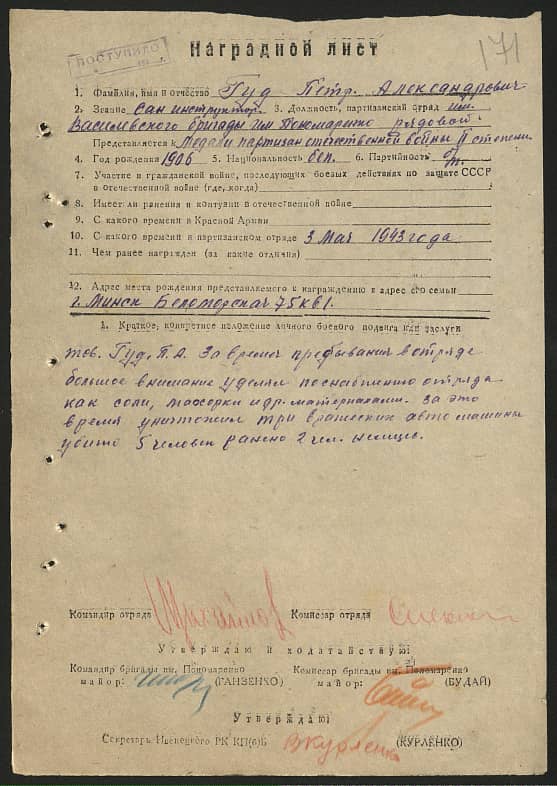 ПОСТУПИЛО
Наградной лист
171
1. Фамилия, имя и отчество Гуд Пётр Александрович
2. Звание сан инструктор. 3. Должность, партизанский отряд им.
Василевского бригады им Пономаренко рядовой
Представляется к Медали партизан отечественной войны II степени
4. Год рождения 1906 5. Национальность бел. 6. Партийность б/п.
7. Участие в гражданской войне, последующих боевых действиях по защите СССР
в отечественной войне (где, когда)
8. Имеет ли ранения и контузии в отечественной войне
9. С какого времени в Красной Армии
10. С какого времени в партизанском отряде 3 Мая 1943 года
11. Чем ранее награжден (за какие отличия)
12. Адрес места рождения представляемого к награждению и адрес его семьи
г. Минск Беломорская 75 кв 1.
1. Краткое, конкретное изложение личного боевого подвига или заслуги
тов. Гуд. П.А. За время пребывания в отряде
большое внимание уделял по снабжению отряда
как соли, махорки и др. материалами. За это
время уничтожил три вражеских авто машины
убито 5 человек ранено 2 чел. немцев.
Командир отряда Комиссар отряда
Утверждаю и ходатайствую:
Командир бригады им. Пономаренко Комиссар бригады им. Пономаренко
майор: (ГАНЗЕНКО) майор: (БУДАЙ)
Утверждаю:
Секретарь Ивенецкого РК КП(б)Б ВКурленко (КУРЛЕНКО)